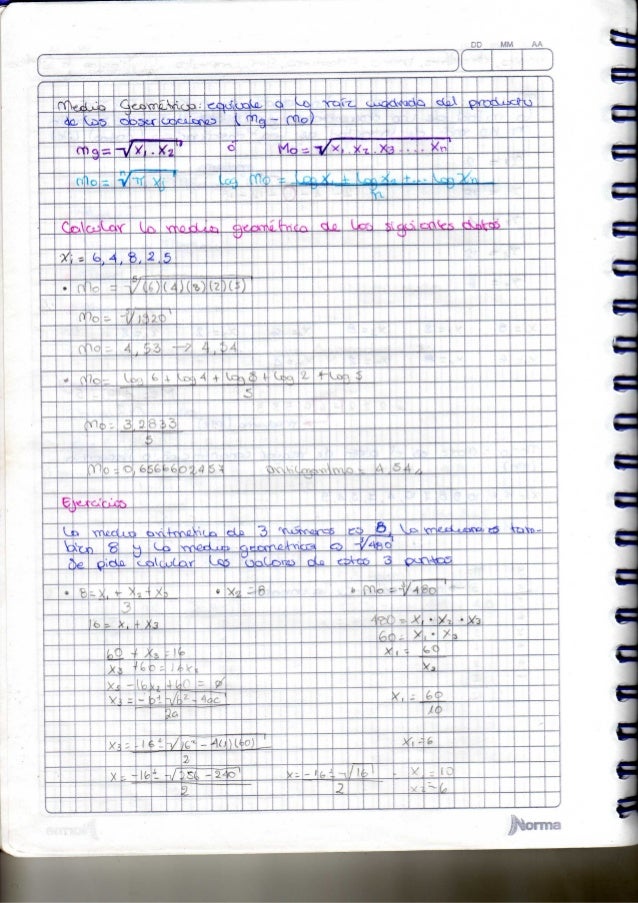 DD MM AA
Media Geométrica: equivale a la raíz cuadrada del producto
de las observaciones (mg - Mo)
mg = √X₁ . X₂ ó Mo = √X₁ . X₂ . X₃ .... Xn
Mo = ⁿ√π Xi log Mo = log X₁ + log X₂ + ... log Xn
n
Calcular la media geométrica de los siguientes datos
Xi = 6, 4, 8, 2, 5
• Mo = ⁵√(6)(4)(8)(2)(5)
Mo = ⁵√1920
Mo = 4,53 → 4,54
• Mo = log 6 + log 4 + log 8 + log 2 + log 5
5
Mo = 3,2833
5
Mo = 0,6566602457 antilogaritmo = 4,54
Ejercicio
La media aritmética de 3 números es 8, la mediana es tam-
bien 8 y la media geométrica es ³√480
Se pide calcular los valores de estos 3 puntos
• 8 = X₁ + X₂ + X₃ • X₂ = 8 • Mo = ³√480
3
16 = X₁ + X₃ 480 = X₁ • X₂ • X₃
60 = X₁ • X₃
60 + X₃ = 16 X₁ = 60
X₃ + 60 = 16X₃ X₃
X₃ - 16X₂ + 60 = ø
X₃ = -b ± √b² - 4ac X₁ = 60
2a 10
X₃ = -16 ± √16² - 4(1)(60) X₁ = 6
2
X = -16 ± √256 - 240 X = -16 ± √16 X₁ = 10
2 2 X₂ = 6
Norma